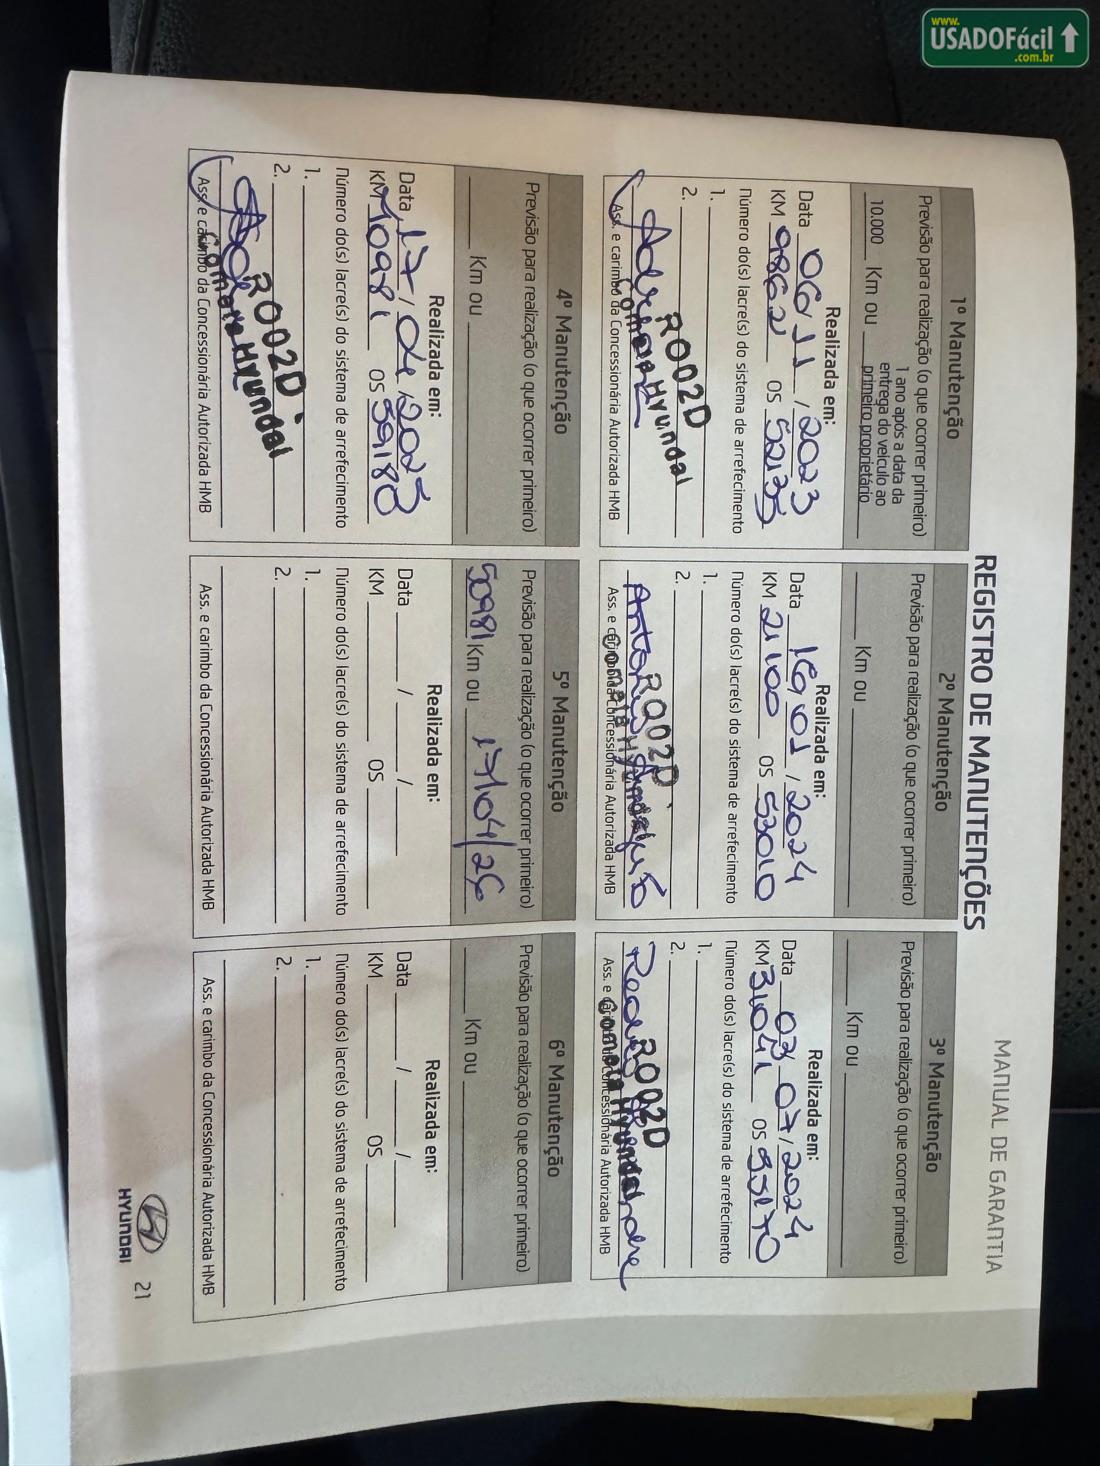 www.
USADOFácil
.com.br
MANUAL DE GARANTIA
REGISTRO DE MANUTENÇÕES
1º Manutenção
Previsão para realização (o que ocorrer primeiro)
10.000 Km ou 1 ano após a data da
entrega do veículo ao
primeiro proprietário
Realizada em:
Data 06/11/2023
KM 9862 OS 52135
Número do(s) lacre(s) do sistema de arrefecimento
1.
2.
R002D
Cometa Hyundai
Ass. e carimbo da Concessionária Autorizada HMB
2º Manutenção
Previsão para realização (o que ocorrer primeiro)
Km ou
Realizada em:
Data 16/01/2024
KM 21100 OS 53010
Número do(s) lacre(s) do sistema de arrefecimento
1.
2.
R002D
Cometa Hyundai
Ass. e carimbo da Concessionária Autorizada HMB
3º Manutenção
Previsão para realização (o que ocorrer primeiro)
Km ou
Realizada em:
Data 03/07/2024
KM 31041 OS 55170
Número do(s) lacre(s) do sistema de arrefecimento
1.
2.
R002D
Cometa Hyundai
Ass. e carimbo da Concessionária Autorizada HMB
4º Manutenção
Previsão para realização (o que ocorrer primeiro)
Km ou
Realizada em:
Data 17/04/2025
KM 40981 OS 59180
Número do(s) lacre(s) do sistema de arrefecimento
1.
2.
R002D
Cometa Hyundai
Ass. e carimbo da Concessionária Autorizada HMB
5º Manutenção
Previsão para realização (o que ocorrer primeiro)
50981 Km ou 17/04/26
Realizada em:
Data / /
KM OS
Número do(s) lacre(s) do sistema de arrefecimento
1.
2.
Ass. e carimbo da Concessionária Autorizada HMB
6º Manutenção
Previsão para realização (o que ocorrer primeiro)
Km ou
Realizada em:
Data / /
KM OS
Número do(s) lacre(s) do sistema de arrefecimento
1.
2.
Ass. e carimbo da Concessionária Autorizada HMB
HYUNDAI 21